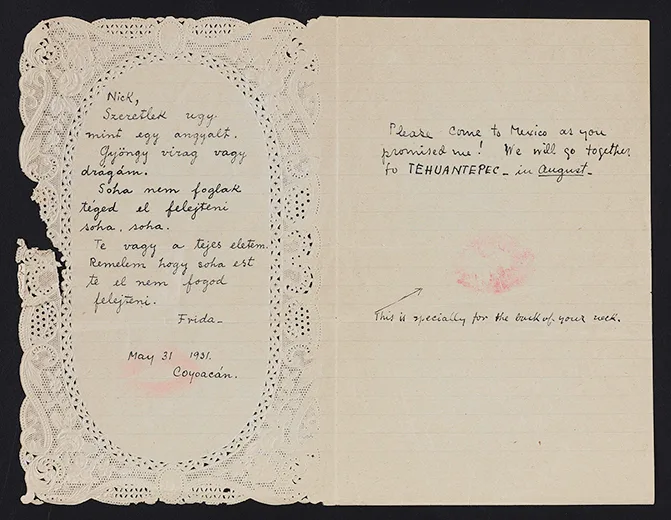 Nick,
Szeretlek ugy
mint egy angyalt.
Gyöngy virag vagy
dragám.
Soha nem foglak
téged el felejteni
soha, soha.
Te vagy a tejes eletem.
Remelem hogy soha est
te el nem fogod
felejteni.
Frida_
May 31 1931.
Coyoacán.
Please come to Mexico as you
promised me! We will go together
to TEHUANTEPEC_ in August_
This is specially for the back of your neck.